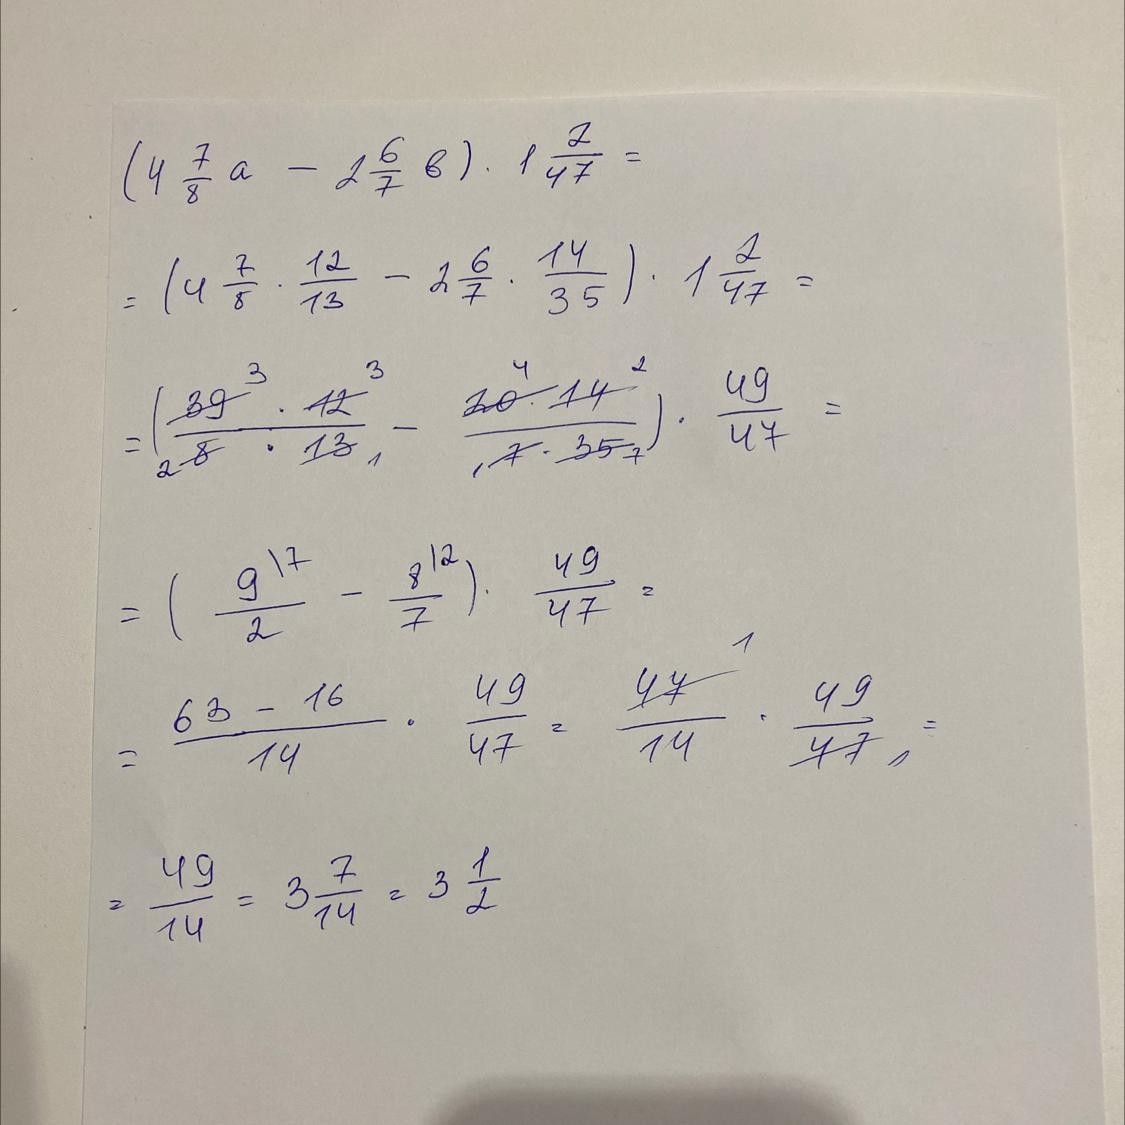 (4 7/8 a - 2 6/7 в) · 1 2/47 =
= (4 7/8 · 12/13 - 2 6/7 · 14/35) · 1 2/47 =
= (39 3 · 12 3 / 2 8 · 13 1 - 20 4 · 14 2 / 1 7 · 35 7) · 49/47 =
= (9\7 / 2 - 8\2 / 7) · 49/47 =
= 63 - 16 / 14 · 49/47 = 47 1 / 14 · 49 / 47 1 =
= 49/14 = 3 7/14 = 3 1/2